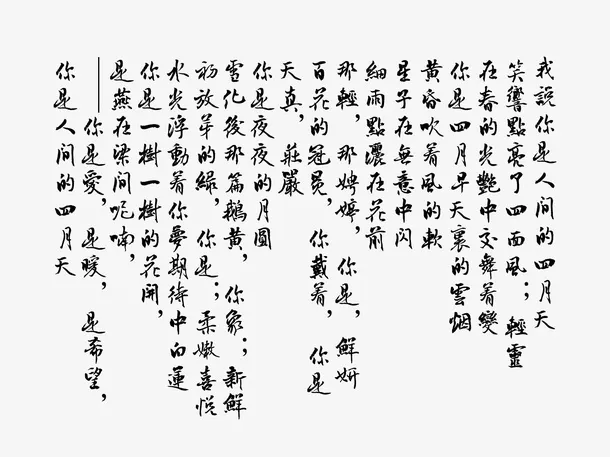 我說你是人間的四月天
笑響點亮了四面風；輕靈
在春的光艷中交舞着變
你是四月早天裏的雲烟
黃昏吹着風的軟
星子在無意中閃
細雨點灑在花前
那輕，那娉婷，你是，鮮妍
百花的冠冕，你戴着，你是
天真，莊嚴
你是夜夜的月圓
雪化後那篇鵝黃，你象；新鮮
初放芽的綠，你是；柔嫩喜悅
水光浮動着你夢期待中白蓮
你是一樹一樹的花開，
是燕在梁間呢喃，
——你是愛，是暖，是希望，
你是人間的四月天